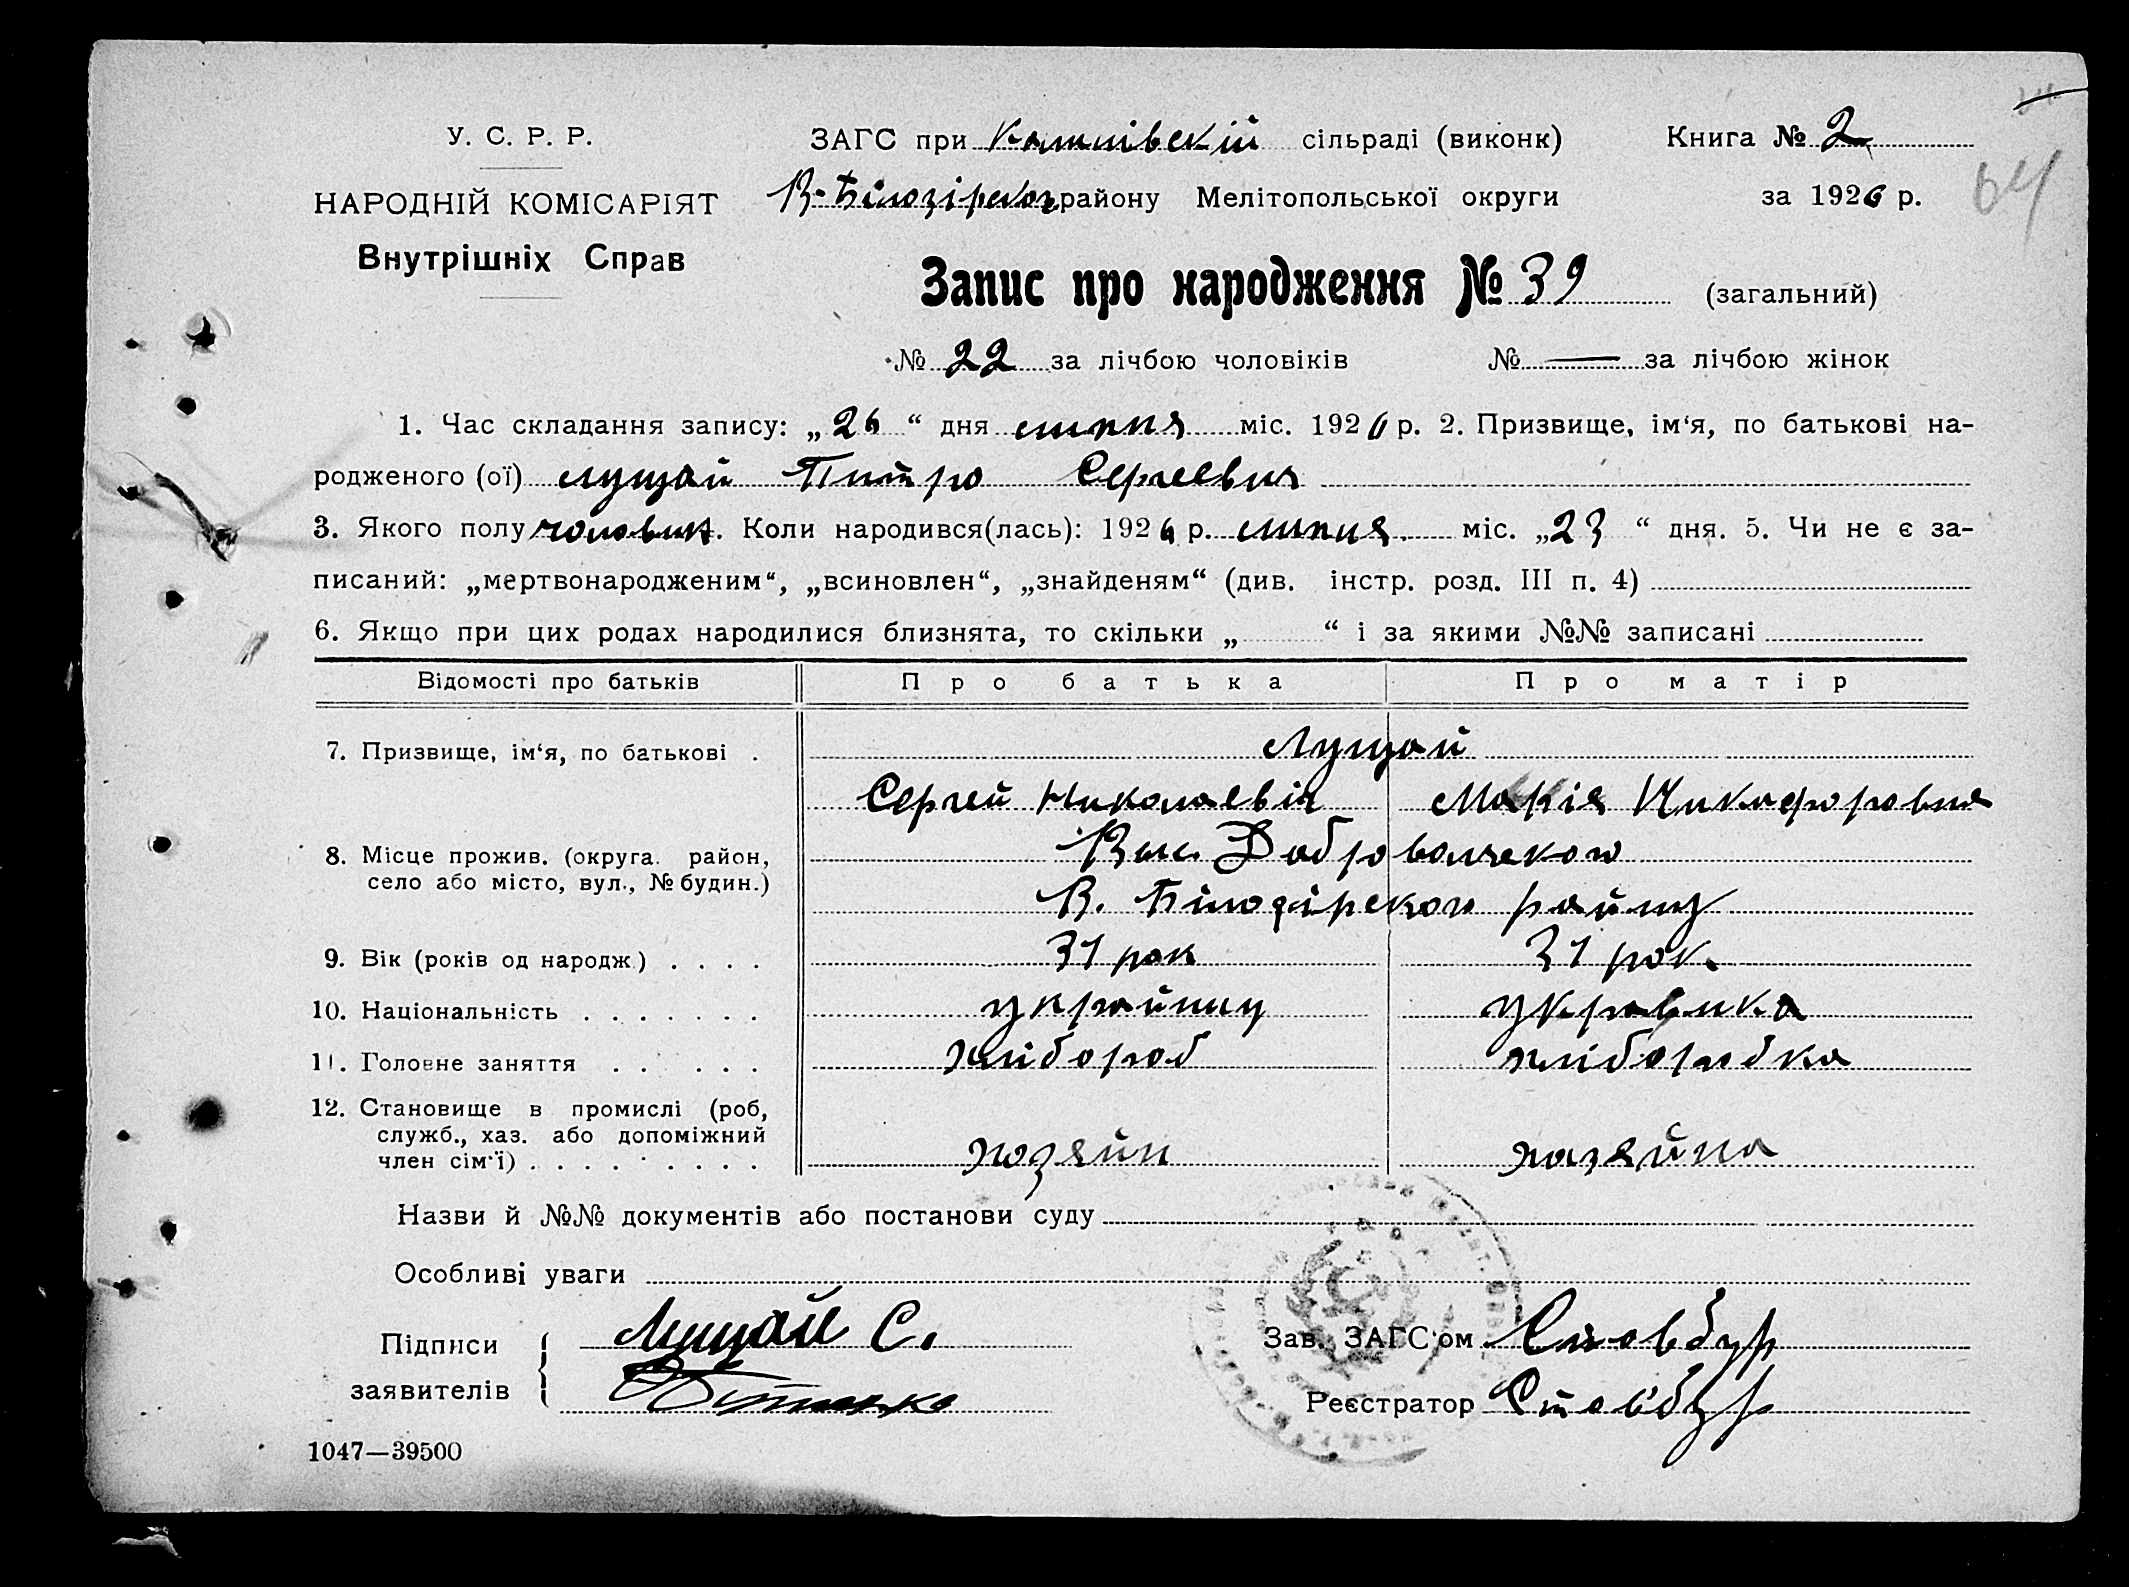 У. С. Р. Р.
НАРОДНІЙ КОМІСАРІЯТ
Внутрішніх Справ
ЗАГС при сільраді (виконк)
В-Білозірског району Мелітопольської округи
Книга № 2
за 1926 р.
64
Запис про народження № 39 (загальний)
№ 22 за лічбою чоловіків № — за лічбою жінок
1. Час складання запису: „26“ дня липня міс. 1926 р. 2. Призвище, ім'я, по батькові на-
родженого (ої) Лущай Питро Сергеевич
3. Якого полу чоловик. Коли народився(лась): 1926 р. липня міс. „23“ дня. 5. Чи не є за-
писаний: „мертвонародженим“, „всиновлен“, „знайденям“ (див. інстр. розд. III п. 4)
6. Якщо при цих родах народилися близнята, то скільки „ “ і за якими №№ записані
Відомості про батьків Про батька Про матір
7. Призвище, ім'я, по батькові . Лущай
Сергей Николаевіч Марія Никифоровна
8. Місце прожив. (округа. район,
село або місто, вул., № будин.)
Вик.
В. Білозірског району
9. Вік (років од народж.) . . . . 31 рок 31 рок.
10. Національність . . . . . . . украйинц укравинка
11. Головне заняття . . . . . хлібороб хліборобка
12. Становище в промислі (роб,
служб., хаз. або допоміжний
член сім'ї) . . . . . . . . . хозяйн хазяйна
Назви й №№ документів або постанови суду
Особливі уваги
Підписи
заявителів
Лущай С.
Зав. ЗАГС'ом Стовбур
Реєстратор Стовбур
1047—39500